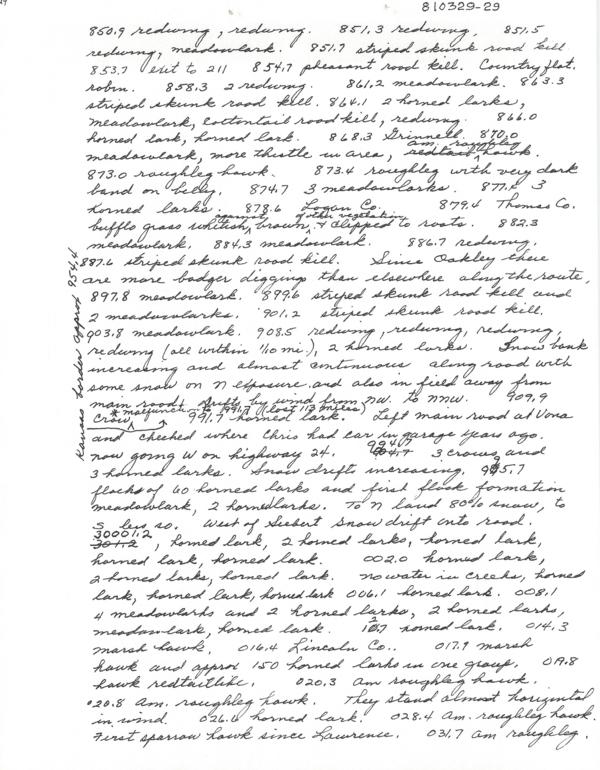 810329-29
850.9 redwing, redwing. 851.3 redwing, 851.5
redwing, meadowlark. 851.7 striped skunk road kill
853.7 exit to 211 854.7 pheasant road kill. Country flat.
robin. 858.3 2 redwing. 861.2 meadowlark. 863.3
striped skunk road kill. 864.1 2 horned larks,
meadowlark, cottontail road kill, redwing. 866.0
horned lark, horned lark. 868.3 Grinnell. 870.0
am. roughleg
meadowlark, more thistle in area, redtail hawk.
873.0 roughleg hawk. 873.4 roughleg with very dark
band on belly. 874.7 3 meadowlarks. 877. 3
horned larks. 878.6 Logan Co. 879.4 Thomas Co.
against of other vegetation
bufflo grass whitish, brown, & clipped to roots. 882.3
meadowlark. 884.3 meadowlark. 886.7 redwing.
887.6 striped skunk road kill. Since Oakley there
are more badger diggings than elsewhere along the route.
897.8 meadowlark. 899.6 striped skunk road kill and
2 meadowlarks. 901.2 striped skunk road kill.
903.8 meadowlark. 908.5 redwing, redwing, redwing,
redwing (all within 1/10 mi.), 2 horned larks. Snow bank
increasing and almost continuous along road with
some snow on N exposure and also in field away from
main road. Drifts by wind from NW. to NNW. 909.9
* malfunction to 991.7 (lost 113 miles)
crow 991.7 horned lark. Left main road at Vona
and checked where Chris had car in garage years ago.
now going W on highway 24. 994.7 3 crows and
3 horned larks. Snow drifts increasing, 995.7
flocks of 60 horned larks and first flock formation
meadowlark, 2 horned larks. To N land 80% snow, to
S less so. West of Seibert snow drift onto road.
30001.2
301.2, horned lark, 2 horned larks, horned lark,
horned lark, horned lark. 002.0 horned lark,
2 horned larks, horned lark. no water in creeks, horned
lark, horned lark, horned lark 006.1 horned lark. 008.1
4 meadowlarks and 2 horned larks, 2 horned larks,
meadowlark, horned lark. horned lark. 014.3
marsh hawk. 016.4 Lincoln Co.. 017.9 marsh
hawk and approx 150 horned larks in one group. 019.8
hawk redtaillike. 020.3 am roughleg hawk.
020.8 am. roughleg hawk. They stand almost horizontal
in wind. 026.6 horned lark. 028.4 am. roughleg hawk.
First sparrow hawk since Lawrence. 031.7 am roughleg.
Kansas border approx 954.4